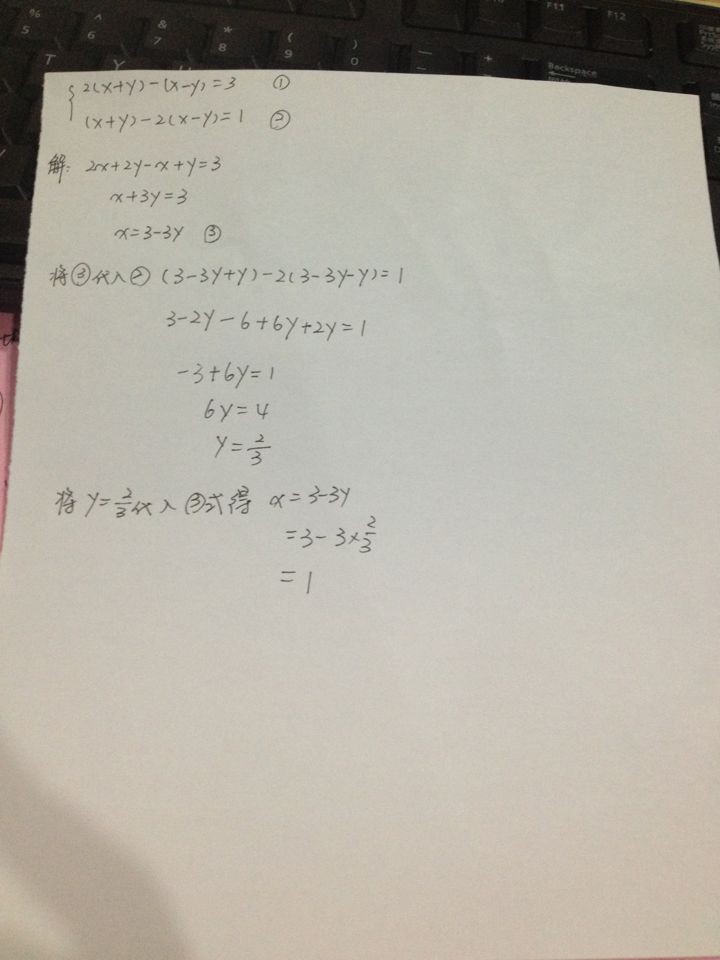 % 5
^ 6
& 7
* 8
( 9
) 0
—
+
F11
F12
T
Y
Backspace
2(x+y)-(x-y)=3 ①
(x+y)-2(x-y)=1 ②
解: 2x+2y-x+y=3
x+3y=3
x=3-3y ③
将③代入② (3-3y+y)-2(3-3y-y)=1
3-2y-6+6y+2y=1
-3+6y=1
6y=4
y=2/3
将 y=2/3代入③式得 x=3-3y
=3-3×2/3
=1